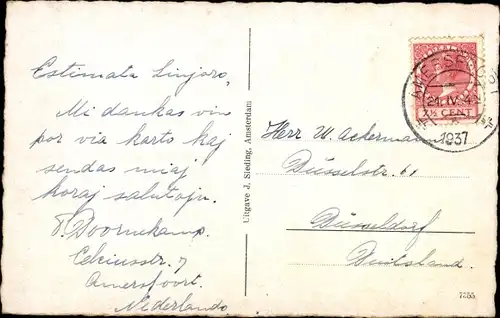 Estimata Sinjoro,
Mi dankas vin
por via karto kaj
sendas miaj
koraj salutojn.
T. Doornekamp.
Celciusstr. 7
Amersfoort.
Nederlando
Uitgave J. Sieding, Amsterdam
AMERSFOORT
21.IV.
1937
7½ CENT
Herr W. Ackermann
Düsselstr. 61
Düsseldorf
Duitsland.